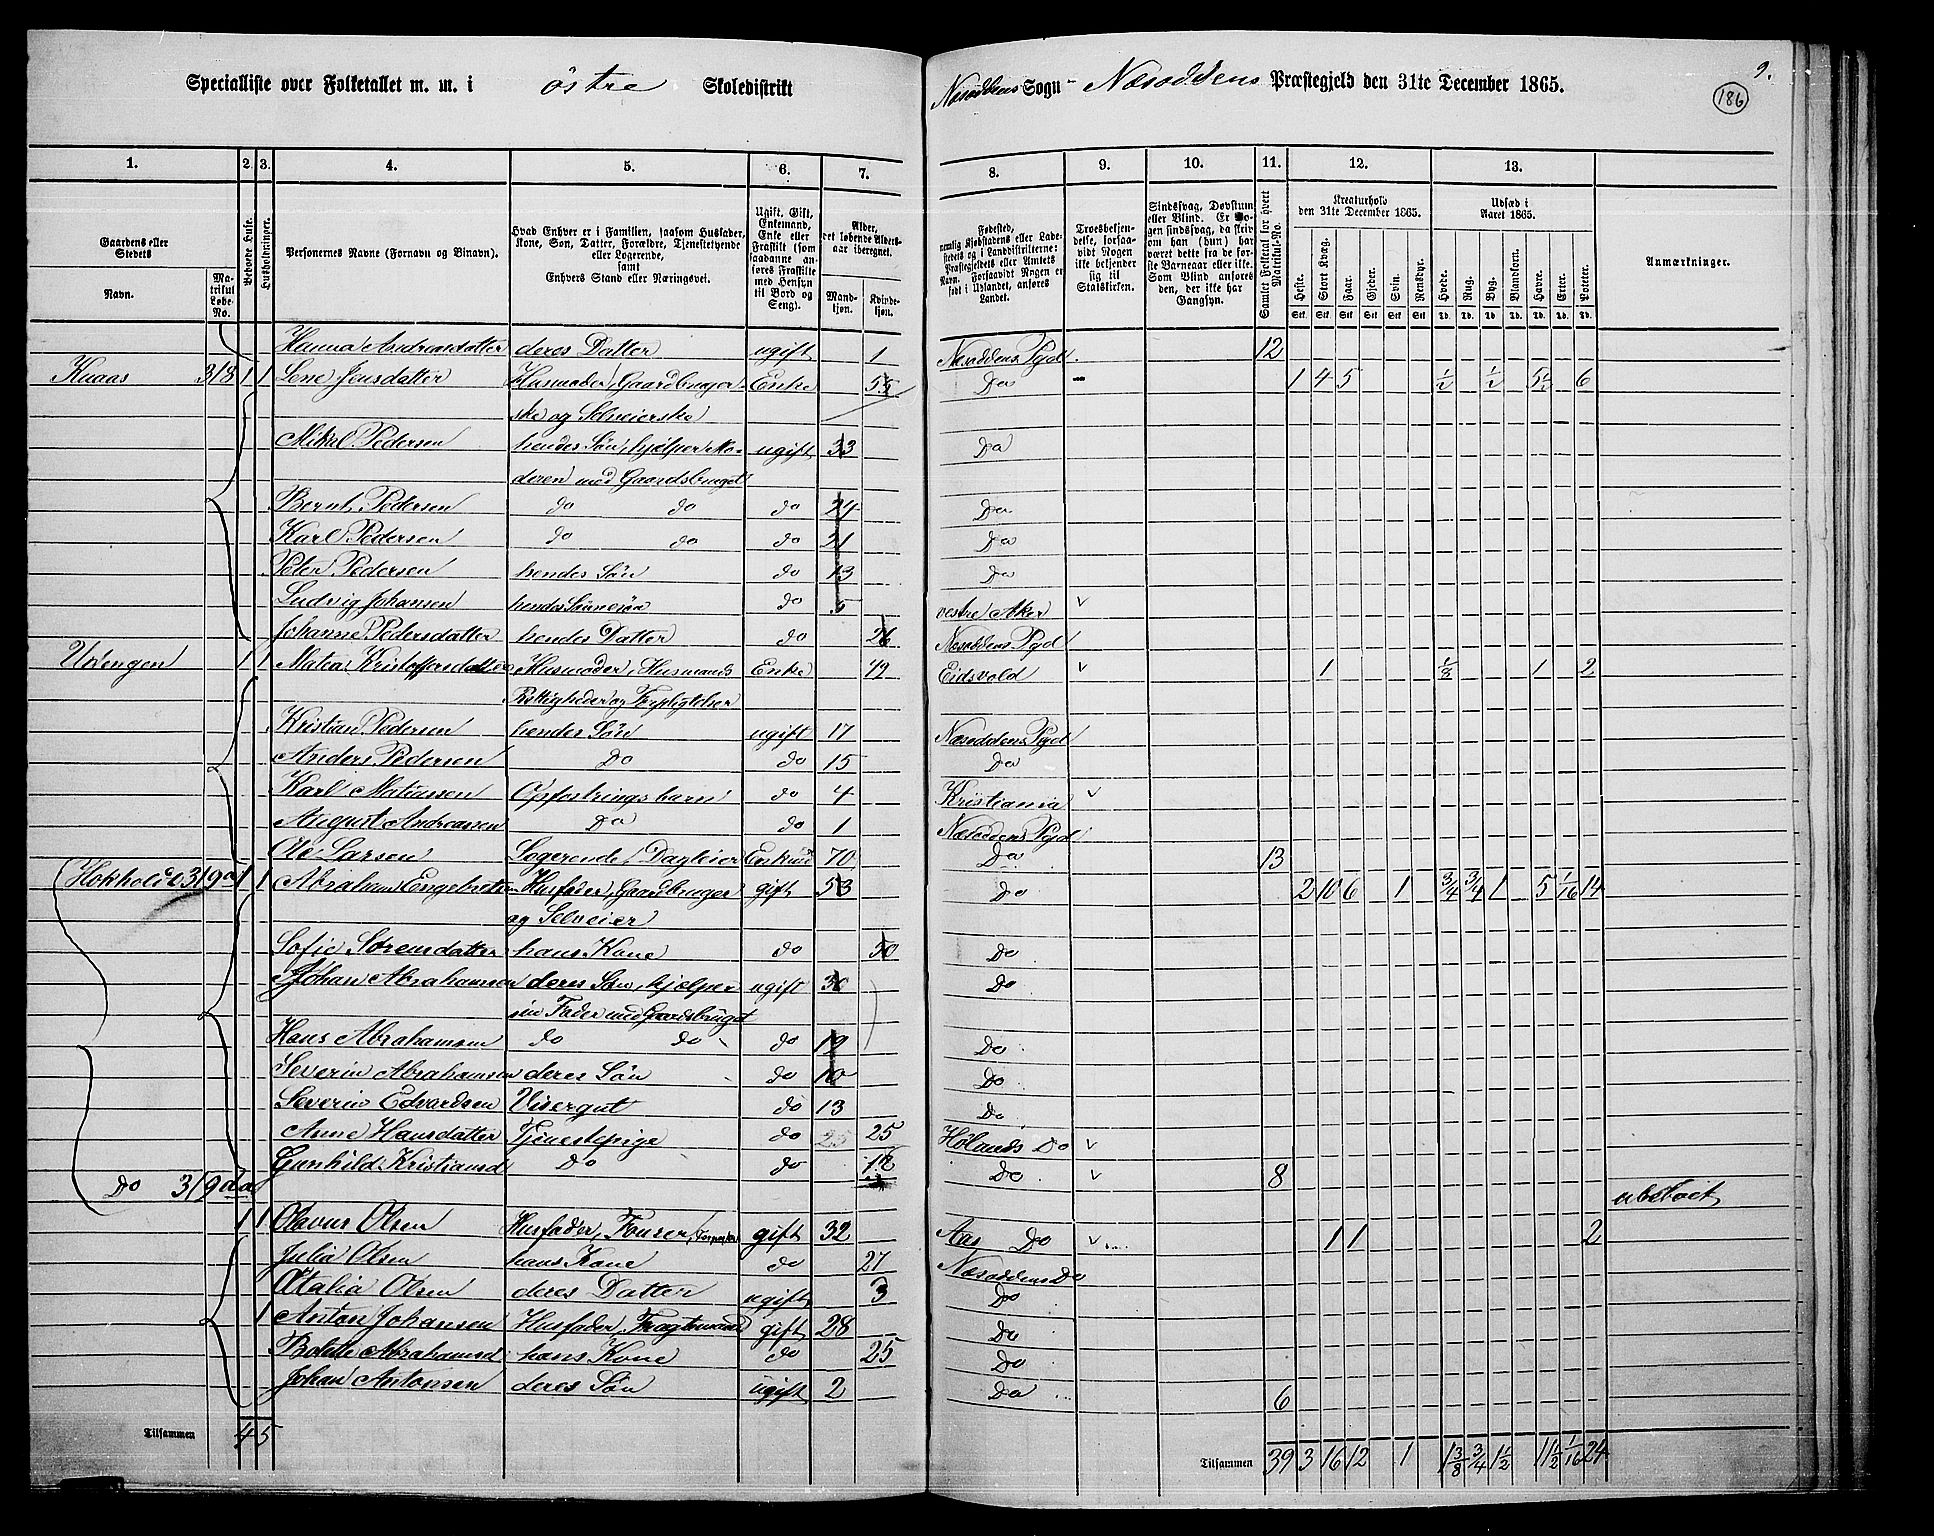 Specialliste over Folketallet m. m. i østre Skoledistrikt Næsoddens Sogn - Næsoddens Præstegjeld den 31te December 1865.
9.
186
1. 2. 3. 4. 5. 6. 7. 8. 9. 10. 11. 12. 13.
Gaardens eller Stedets
Navn.
Matrikul Løbe-No.
Beboede Huse.
Husholdninger.
Personernes Navne (Fornavn og Binavn).
Hvad Enhver er i Familien, saasom Husfader, Kone, Søn, Datter, Forældre, Tjenestetyende eller Logerende, samt Enhvers Stand eller Næringsvei.
Ugift, Gift, Enkemand, Enke eller Fraskilt (som saadanne anføres Fraskilte med Hensyn til Bord og Seng).
Alder, det løbende Aldersaar iberegnet.
Mandkjøn.
Kvindekjøn.
Fødested, nemlig Kjøbstadens eller Ladestedets og i Landdistrikterne: Præstegjeldets eller Amtets Navn. Forsaavidt Nogen er født i Udlandet, anføres Landet.
Troesbekjendelse, forsaavidt Nogen ikke bekjender sig til Statskirken.
Sindssvag, Døvstum eller Blind. Er Nogen sindssvag, da skriv om han (hun) har været dette fra de første Barneaar eller ikke. Som Blind anføres den, der ikke har Gangsyn.
Samlet Folketal for hvert Matrikul-No.
Kreaturhold den 31te December 1865.
Heste. Stort Kvæg. Faar. Gjeder. Svin. Rensdyr.
Stk. Stk. Stk. Stk. Stk. Stk.
Udsæd i Aaret 1865.
Hvede. Rug. Byg. Blandkorn. Havre. Erter. Poteter.
Td. Td. Td. Td. Td. Td. Td.
Anmærkninger.
Hanna Andreasdatter deres Datter ugift 1 Næsoddens Pgd 12
Knaas 318 1 1 Lene Jensdatter Husmoder, Gaardbruger- Enke 55 Do 1 4 5 ½ ½ 5½ 6
ske og Selveierske
Mikal Pedersen hendes Søn, hjelper Mo- ugift 33 Do
deren med Gaardsbruget
Bernt Pedersen do do do 24 Do
Karl Pedersen do do do 21 Do
Peter Pedersen hendes Søn do 13 Do
Ludvig Johansen hendes Sønnesøn do 5 vestre Aker
Johanne Pedersdatter hendes Datter do 26 Næsoddens Pgd
1 1 Matea Kristoffersdatter Husmoder, Husmands Enke 42 Eidsvold 1 ⅛ 1 2
Rettigheder og Forpligtelser
Kristian Pedersen hendes Søn ugift 17 Næsoddens Pgd
Anders Pedersen Do do 15 Do
Karl Matiassen Opfostringsbarn do 4 Kristiania
August Andreassen Do do 1 Næsoddens Pgd
Ole Larsen Logerende, Dagleier Enkmd 70 Do 13
Hokholdt 319a 1 1 Abraham Engebretsen Husfader, Gaardbruger gift 53 Do 2 10 6 1 ¾ ¾ 1 5 1/16 14
og Selveier
Sofie Sørensdatter hans Kone do 50 Do
Johan Abrahamsen deres Søn, hjelper ugift 30 Do
sin Fader med Gaardsbruget
Hans Abrahamsen do do do 19 Do
Severin Abrahamsen deres Søn do 10 Do
Severin Edvardsen Visergut do 13 Do
Anne Hansdatter Tjenestepige do 25 25 Hølands Do
Gunhild Kristiansd Do do 12 Do 8
Do 319 aa ubeboet
1 1 Olavus Olsen Husfader, gift 32 Aas Do 1 1 2
Julia Olsen hans Kone do 27 Næsoddens Do
Otalia Olsen deres Datter ugift 3 Do
1 Anton Johansen Husfader, Fragtemand gift 28 Do
Bolette Abrahamsd hans Kone do 25 Do
Johan Antonsen deres Søn ugift 2 Do 6
Tilsammen 4 5 Tilsammen 39 3 16 12 1 1⅜ ¾ 1½ 11½ 1/16 24